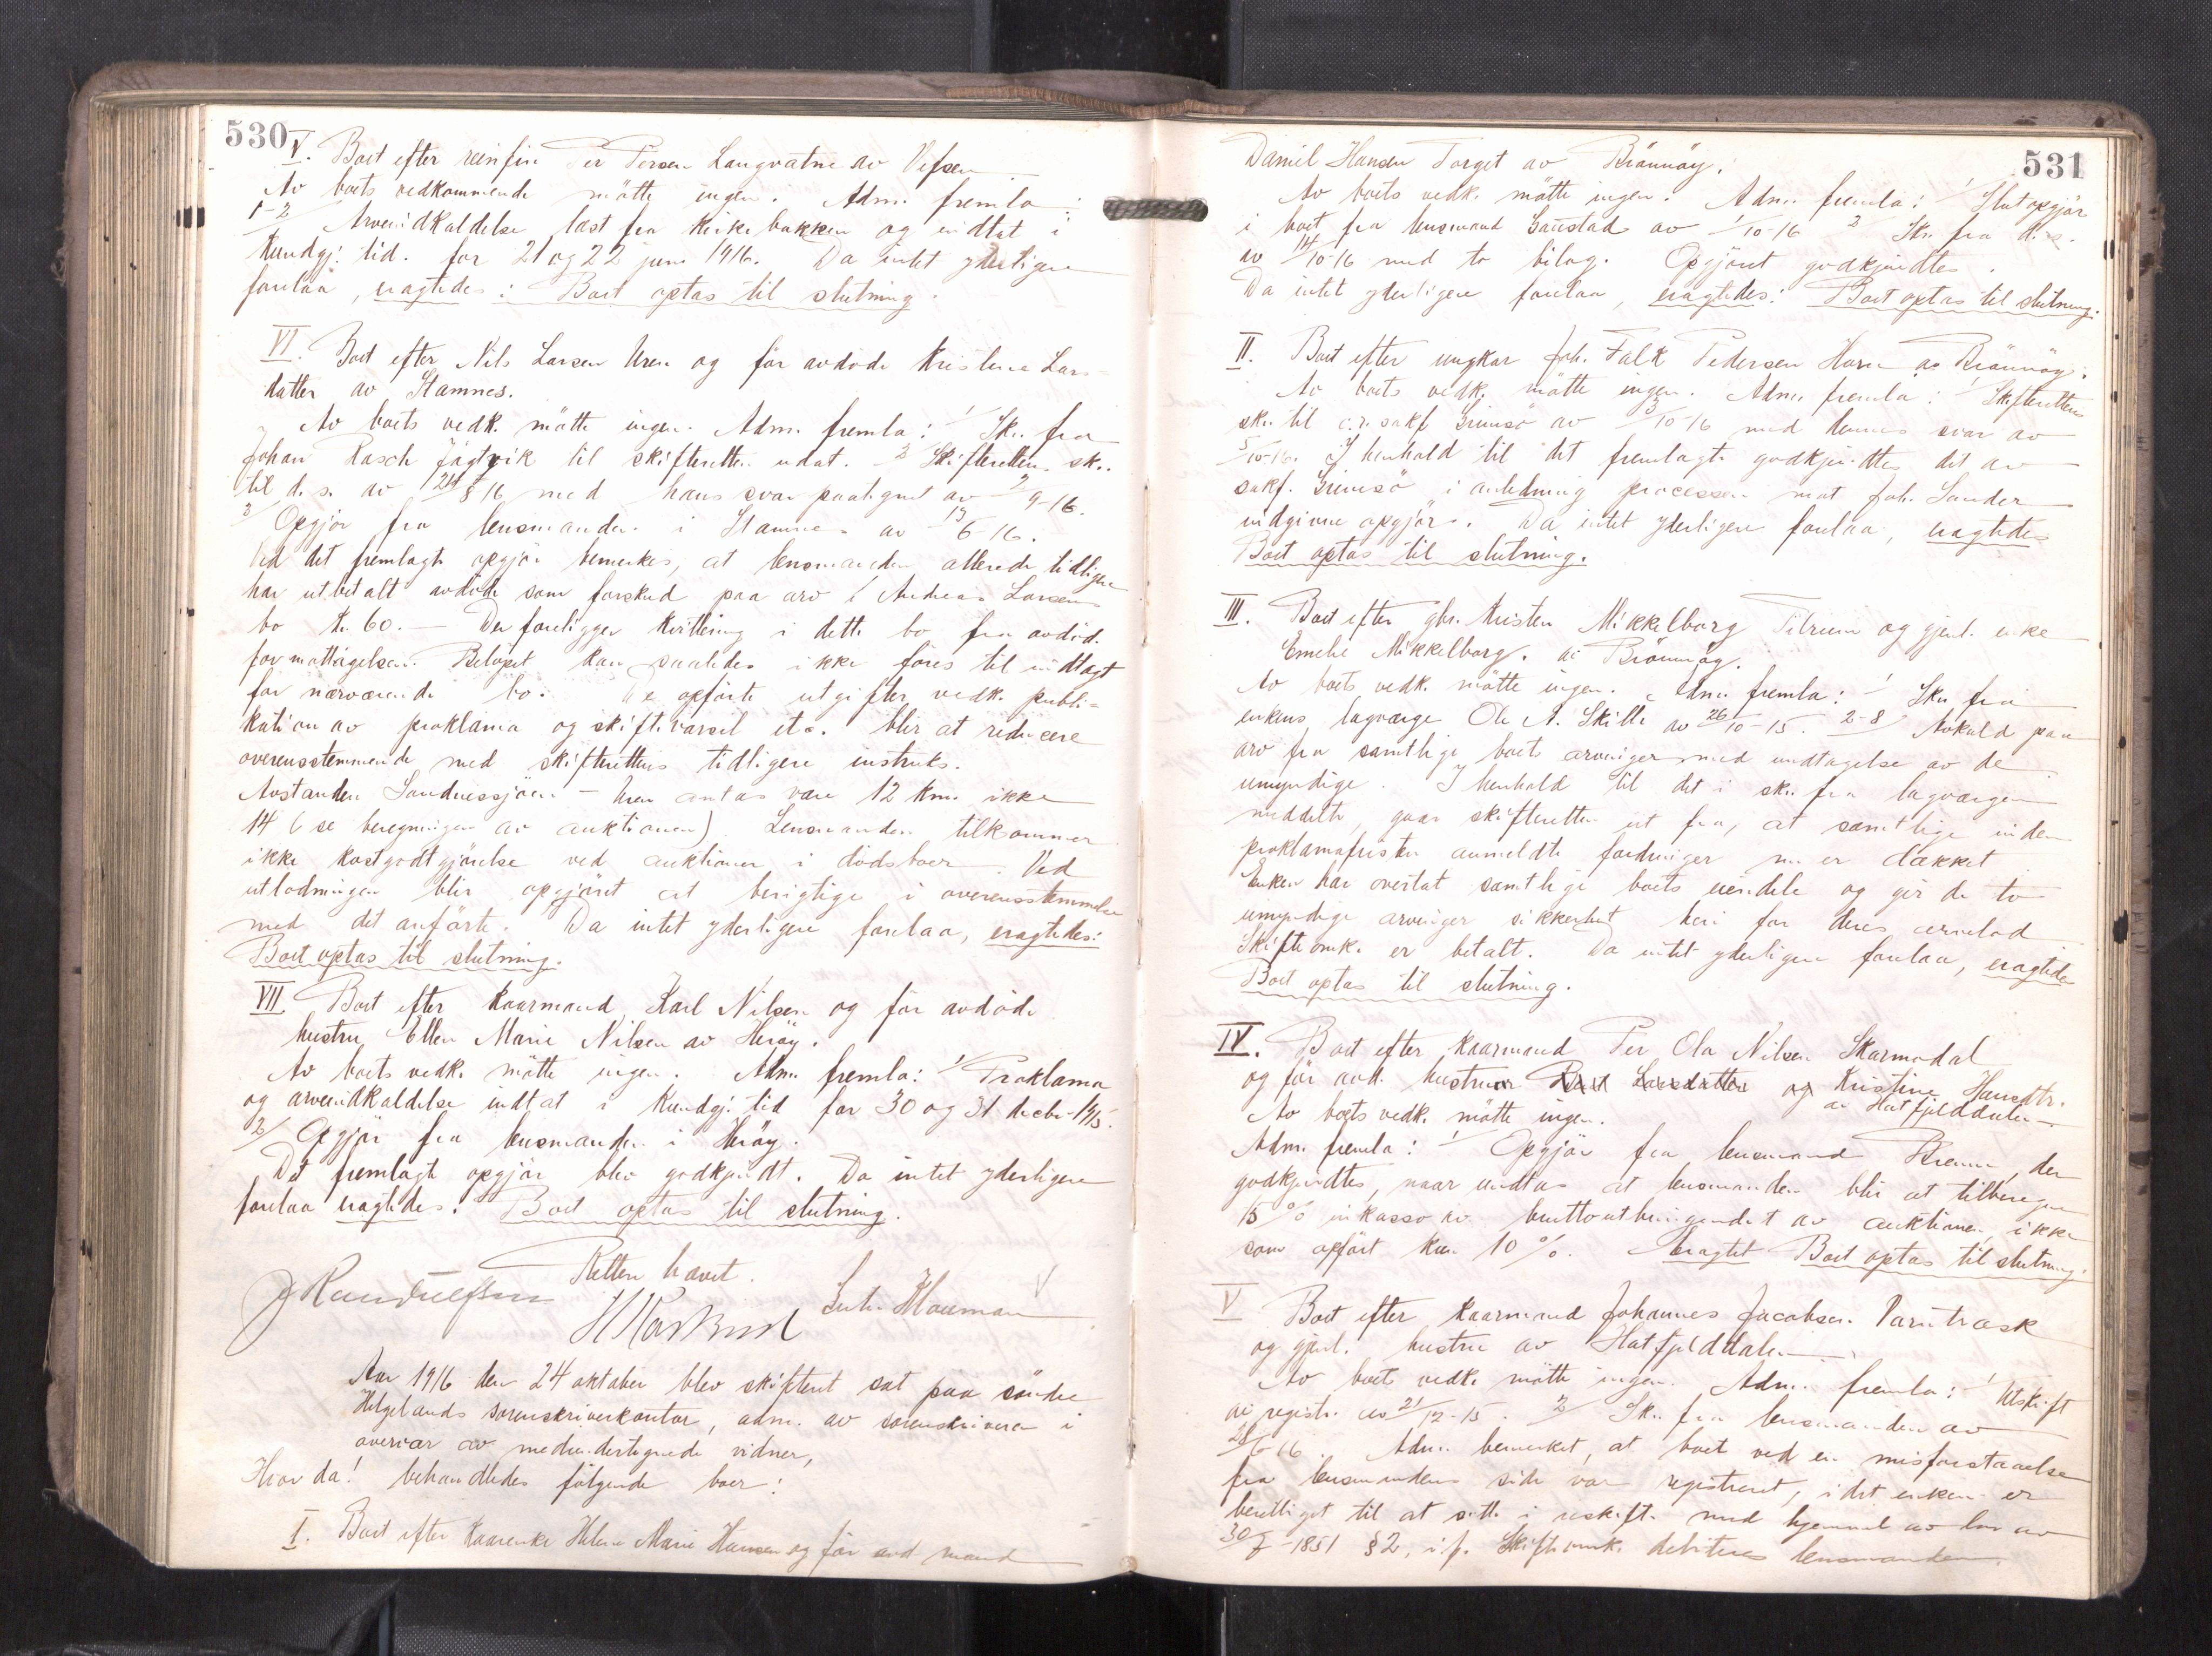 530
V. Boet efter reinfin Per Persen Langvatne av Vefsen.
Av boets vedkommende mötte ingen. Adm. fremla:
1-2/ Arveindkaldelse læst fra kirkebakken og indtat i
Kundgj: tid. for 21 og 22 juni 1916. Da intet yderligere
forelaa, eragtedes: Boet optas til slutning.
VI. Boet efter Nils Larsen Uren og før avdøde Kristine Lars-
datter av Stamnes.
Av boets vedk. mötte ingen. Adm. fremla: 1/ Skr. fra
Johan Rasch Jägtvik til skifteretten udat. 2/ Skifterettens skr.
til d. s. av 24/8 16 med hans svar paategnet av 2/9-16.
3/ Opgjör fra lensmanden i Stamnes av 13/6-16.
Ved det fremlagte opgjör bemerkes, at lensmanden allerede tidligere
har utbetalt avdöde som forskud paa arv i Andreas Larsens
bo kr. 60.— Der foreligger kvittering i dette bo fra avdöd.
for mottagelsen. Belöpet kan saaledes ikke föres til indtægt
for nærværende bo. De opförte utgifter vedk. publi-
kation av proklama og skiftevarsel etc. blir at reducere
overensstemmende med skifterettens tidligere instruks.
Avstanden Sandnessjöen - Uren antas være 12 km. ikke
14 (se beregningen av auktionen). Lensmanden tilkommer
ikke kostgodtgjörelse ved auktioner i dödsboer. Ved
utlodningen blir opgjöret at berigtige i overensstemmelse
med det anförte. Da intet yderligere forelaa, eragtedes:
Boet optas til slutning.
VII. Boet efter kaarmand Karl Nilsen og för avdöde
hustru Ellen Marie Nilsen av Heröy.
Av boets vedk. mötte ingen. Adm. fremla: 1/ Proklama
og arveindkaldelse indtat i Kundgj. tid for 30 og 31 decbr. 1915.
2/ Opgjör fra lensmanden i Heröy.
Det fremlagte opgjör blev godkjendt. Da intet yderligere
forelaa eragtedes: Boet optas til slutning.
Retten hævet.
Aar 1916 den 24 oktober blev skifteret sat paa söndre
Helgelands sorenskriverkontor, adm. av sorenskriveren i
overvær av medundertegnede vidner,
Hvor da! behandledes følgende boer:
I. Boet efter kaarenke Helene Marie Hansen og før avd mand
531
Daniel Hansen Torget av Brönnöy.
Av boets vedk. mötte ingen. Adm. fremla: 1/ Slutopgjör
i boet fra lensmand Saustad av 1/10-16 2/ Skr. fra d. s.
av 14/10-16 med to bilag. Opgjöret godkjendtes.
Da intet yderligere forelaa, eragtedes: Boet optas til slutning.
II. Boet efter ungkar Joh. Falk Pedersen Horn av Brönnöy.
Av boets vedk. mötte ingen. Adm. fremla: 1/ Skifterettens
skr. til o.r. sakf. Grimsö av 3/10-16 med dennes svar av
5/10-16. I henhold til det fremlagte godkjendtes det av
sakf. Grimsö i anledning processen mot Joh. Sander
indgivne opgjör. Da intet yderligere forelaa, eragtedes
Boet optas til slutning.
III. Boet efter gbr. Kristen Mikkelborg Tilrum og gjenl. enke
Emelie Mikkelborg. av Brönnöy.
Av boets vedk. mötte ingen. Adm. fremla: 1/ Skr. fra
enkens lagværge Ole A. Skille av 26/10-15. 2-8/ Avkald paa
arv fra samtlige boets arvinger med undtagelse av de
umyndige. I henhold til det i skr. fra lagværgen
meddelte, gaar skifteretten ut fra, at samtlige inden
proklamafristen anmeldte fordringer nu er dækket
Enken har overtat samtlige boets eiendele og gir de to
umyndige arvinger sikkerhet heri for deres arvelod
Skifteomk. er betalt. Da intet yderligere forelaa, eragtedes
Boet optas til slutning.
IV. Boet efter kaarmand Per Ola Nilsen Skarmodal
og för avd. hustruer Larsdatter og Kristine Hansdtr.
av Hatfjelddalen.
Av boets vedk. mötte ingen.
Adm. fremla: 1/ Opgjör fra lensmand, der
godkjendtes, naar undtas at lensmanden blir at tilberegne
15 % inkasso av bruttoutbringendet av auktionen, ikke
som opfört kun 10 %. Eragtet Boet optas til slutning.
V Boet efter kaarmand Johannes Jacobsen Varntræsk
og gjenl. hustru av Hatfjelddalen.
Av boets vedk. mötte ingen. Adm. fremla: 1/ Utskrift
av registr. av 21/12-15. 2/ Skr. fra lensmanden av
26/6 16. Adm. bemerket, at boet ved en misforstaaelse
fra lensmandens side var registreret, idet enken er
berettiget til at sitte i uskifte med hjemmel av lov av
30/7-1851 § 2, i.f. Skifteomk. debiteres lensmanden.